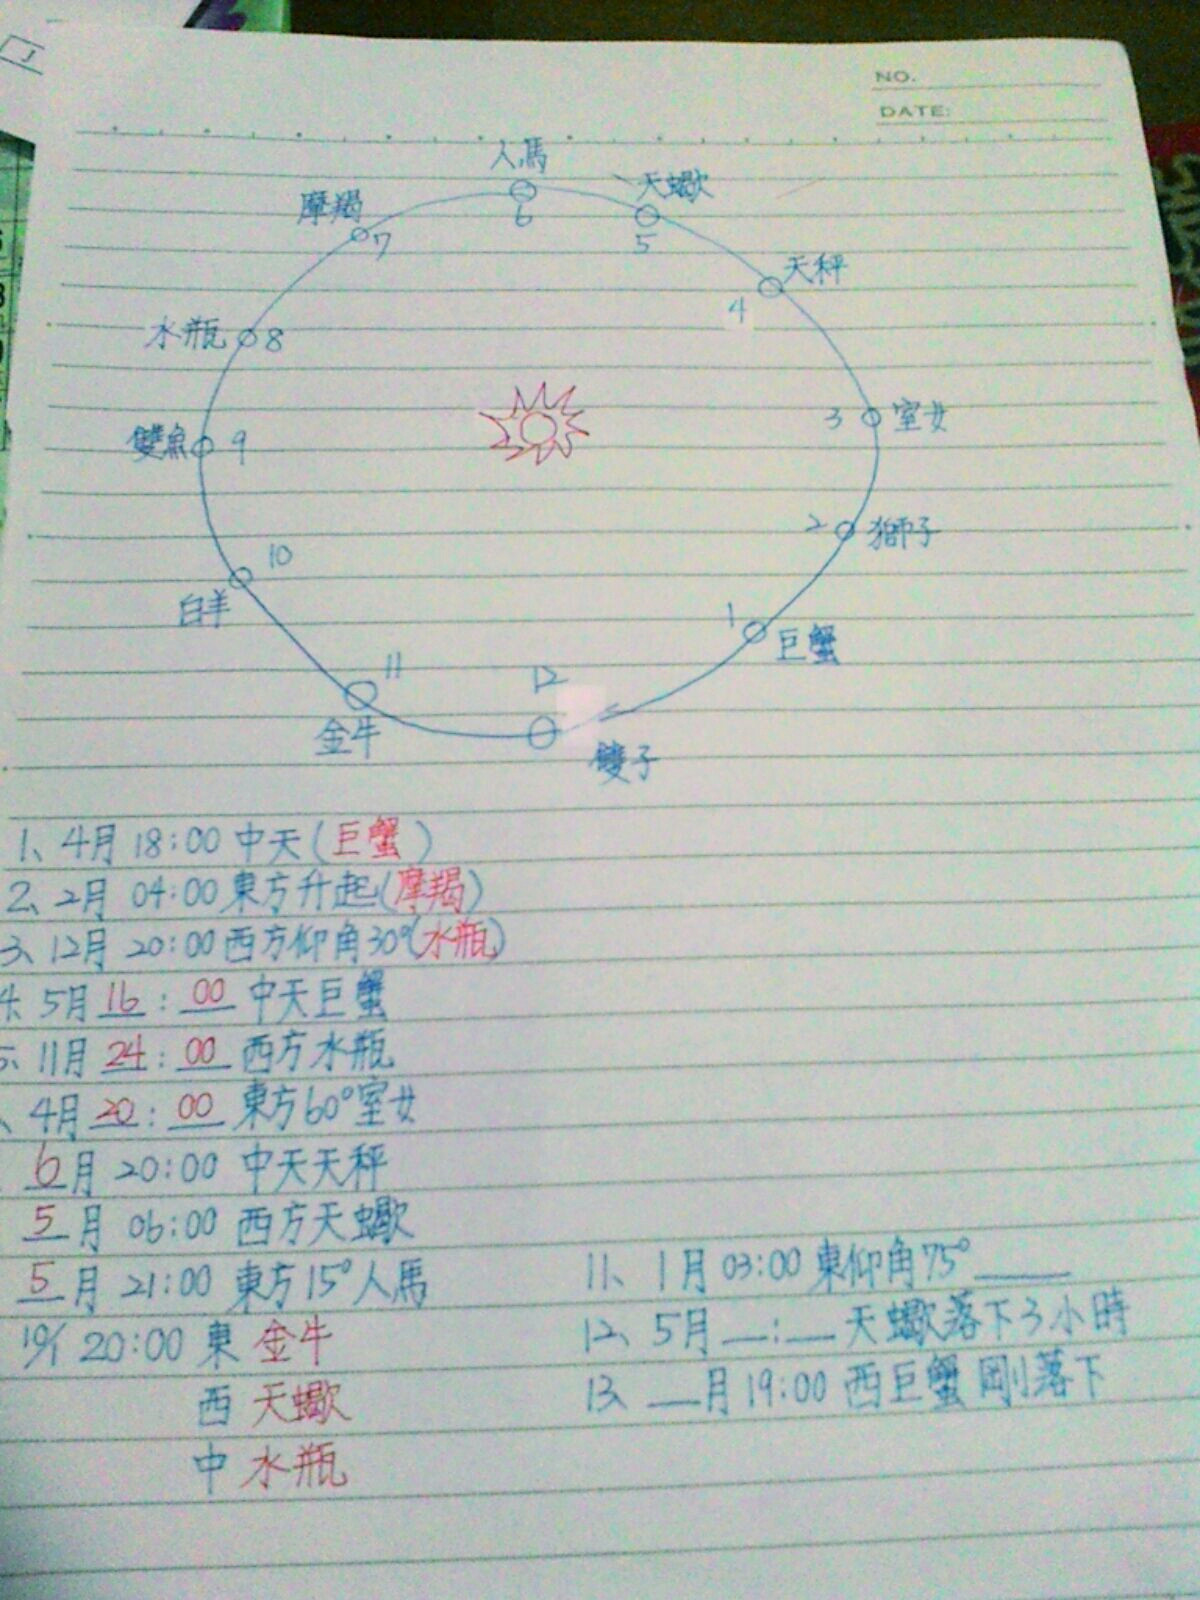 NO.
DATE:
人馬
6
天蠍
5
摩羯
7
天秤
4
水瓶 8
3 室女
雙魚 9
2 獅子
10
白羊
1 巨蟹
11
金牛
12
雙子
1、4月 18:00 中天(巨蟹)
2、2月 04:00 東方升起(摩羯)
3、12月 20:00 西方仰角30°(水瓶)
4、5月 16 : 00 中天巨蟹
5、11月 24 : 00 西方水瓶
、4月 20 : 00 東方60°室女
6月 20:00 中天天秤
5月 06:00 西方天蠍
5月 21:00 東方15°人馬
10/1 20:00 東 金牛
西 天蠍
中 水瓶
11、1月 03:00 東仰角75° ____
12、5月 __:__ 天蠍落下3小時
13、__月 19:00 西巨蟹剛落下